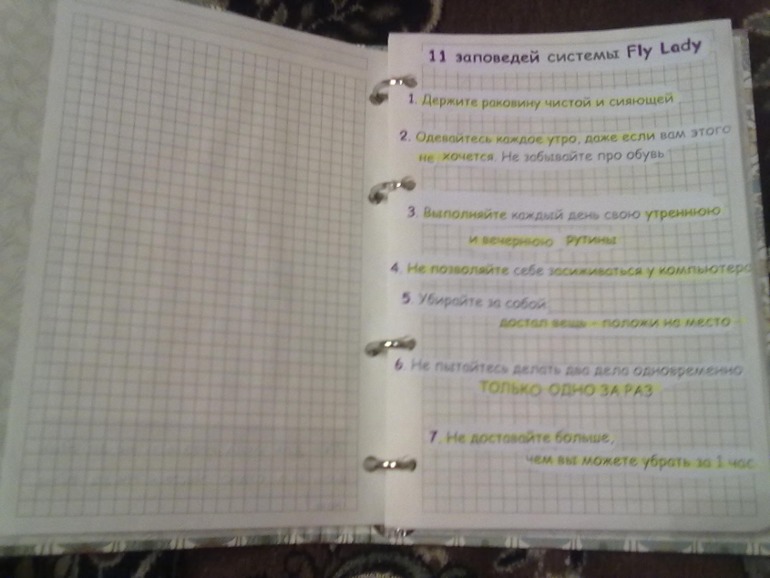 11 заповедей системы Fly Lady
1. Держите раковину чистой и сияющей
2. Одевайтесь каждое утро, даже если вам этого
не хочется. Не забывайте про обувь
3. Выполняйте каждый день свою утреннюю
и вечернюю рутины
4. Не позволяйте себе засиживаться у компьютера
5. Убирайте за собой.
достал вещь - положи на место -
6. Не пытайтесь делать два дела одновременно
ТОЛЬКО ОДНО ЗА РАЗ
7. Не доставайте больше,
чем вы можете убрать за 1 час